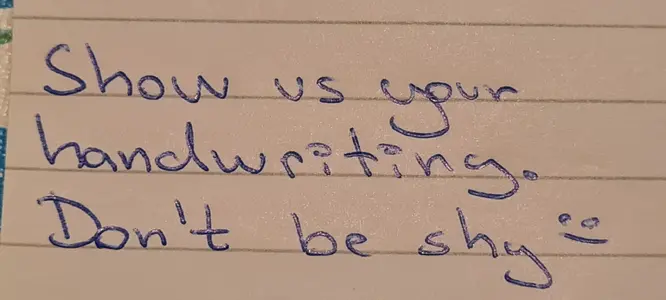 Show us your
handwriting.
Don't be shy :)